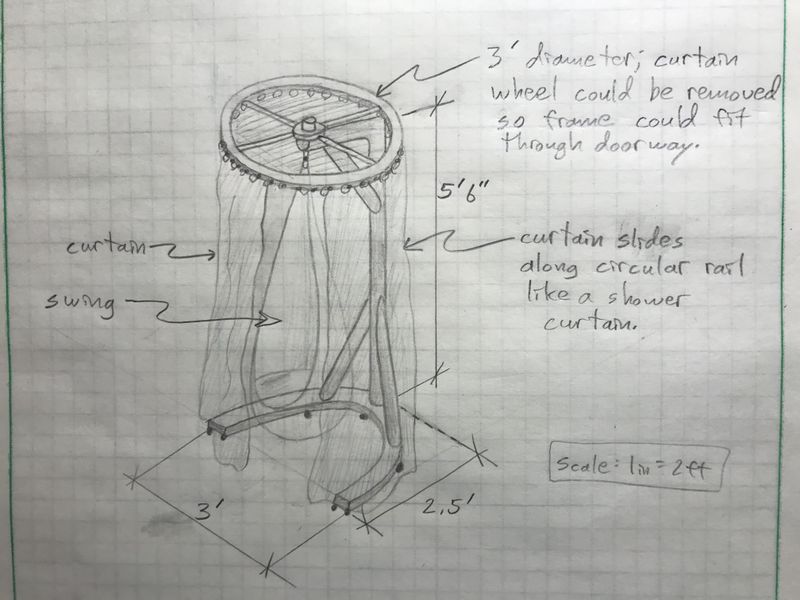 3' diameter; curtain
wheel could be removed
so frame could fit
through doorway.
5'6"
curtain
curtain slides
along circular rail
like a shower
curtain.
swing
scale: 1in = 2ft
3'
2.5'